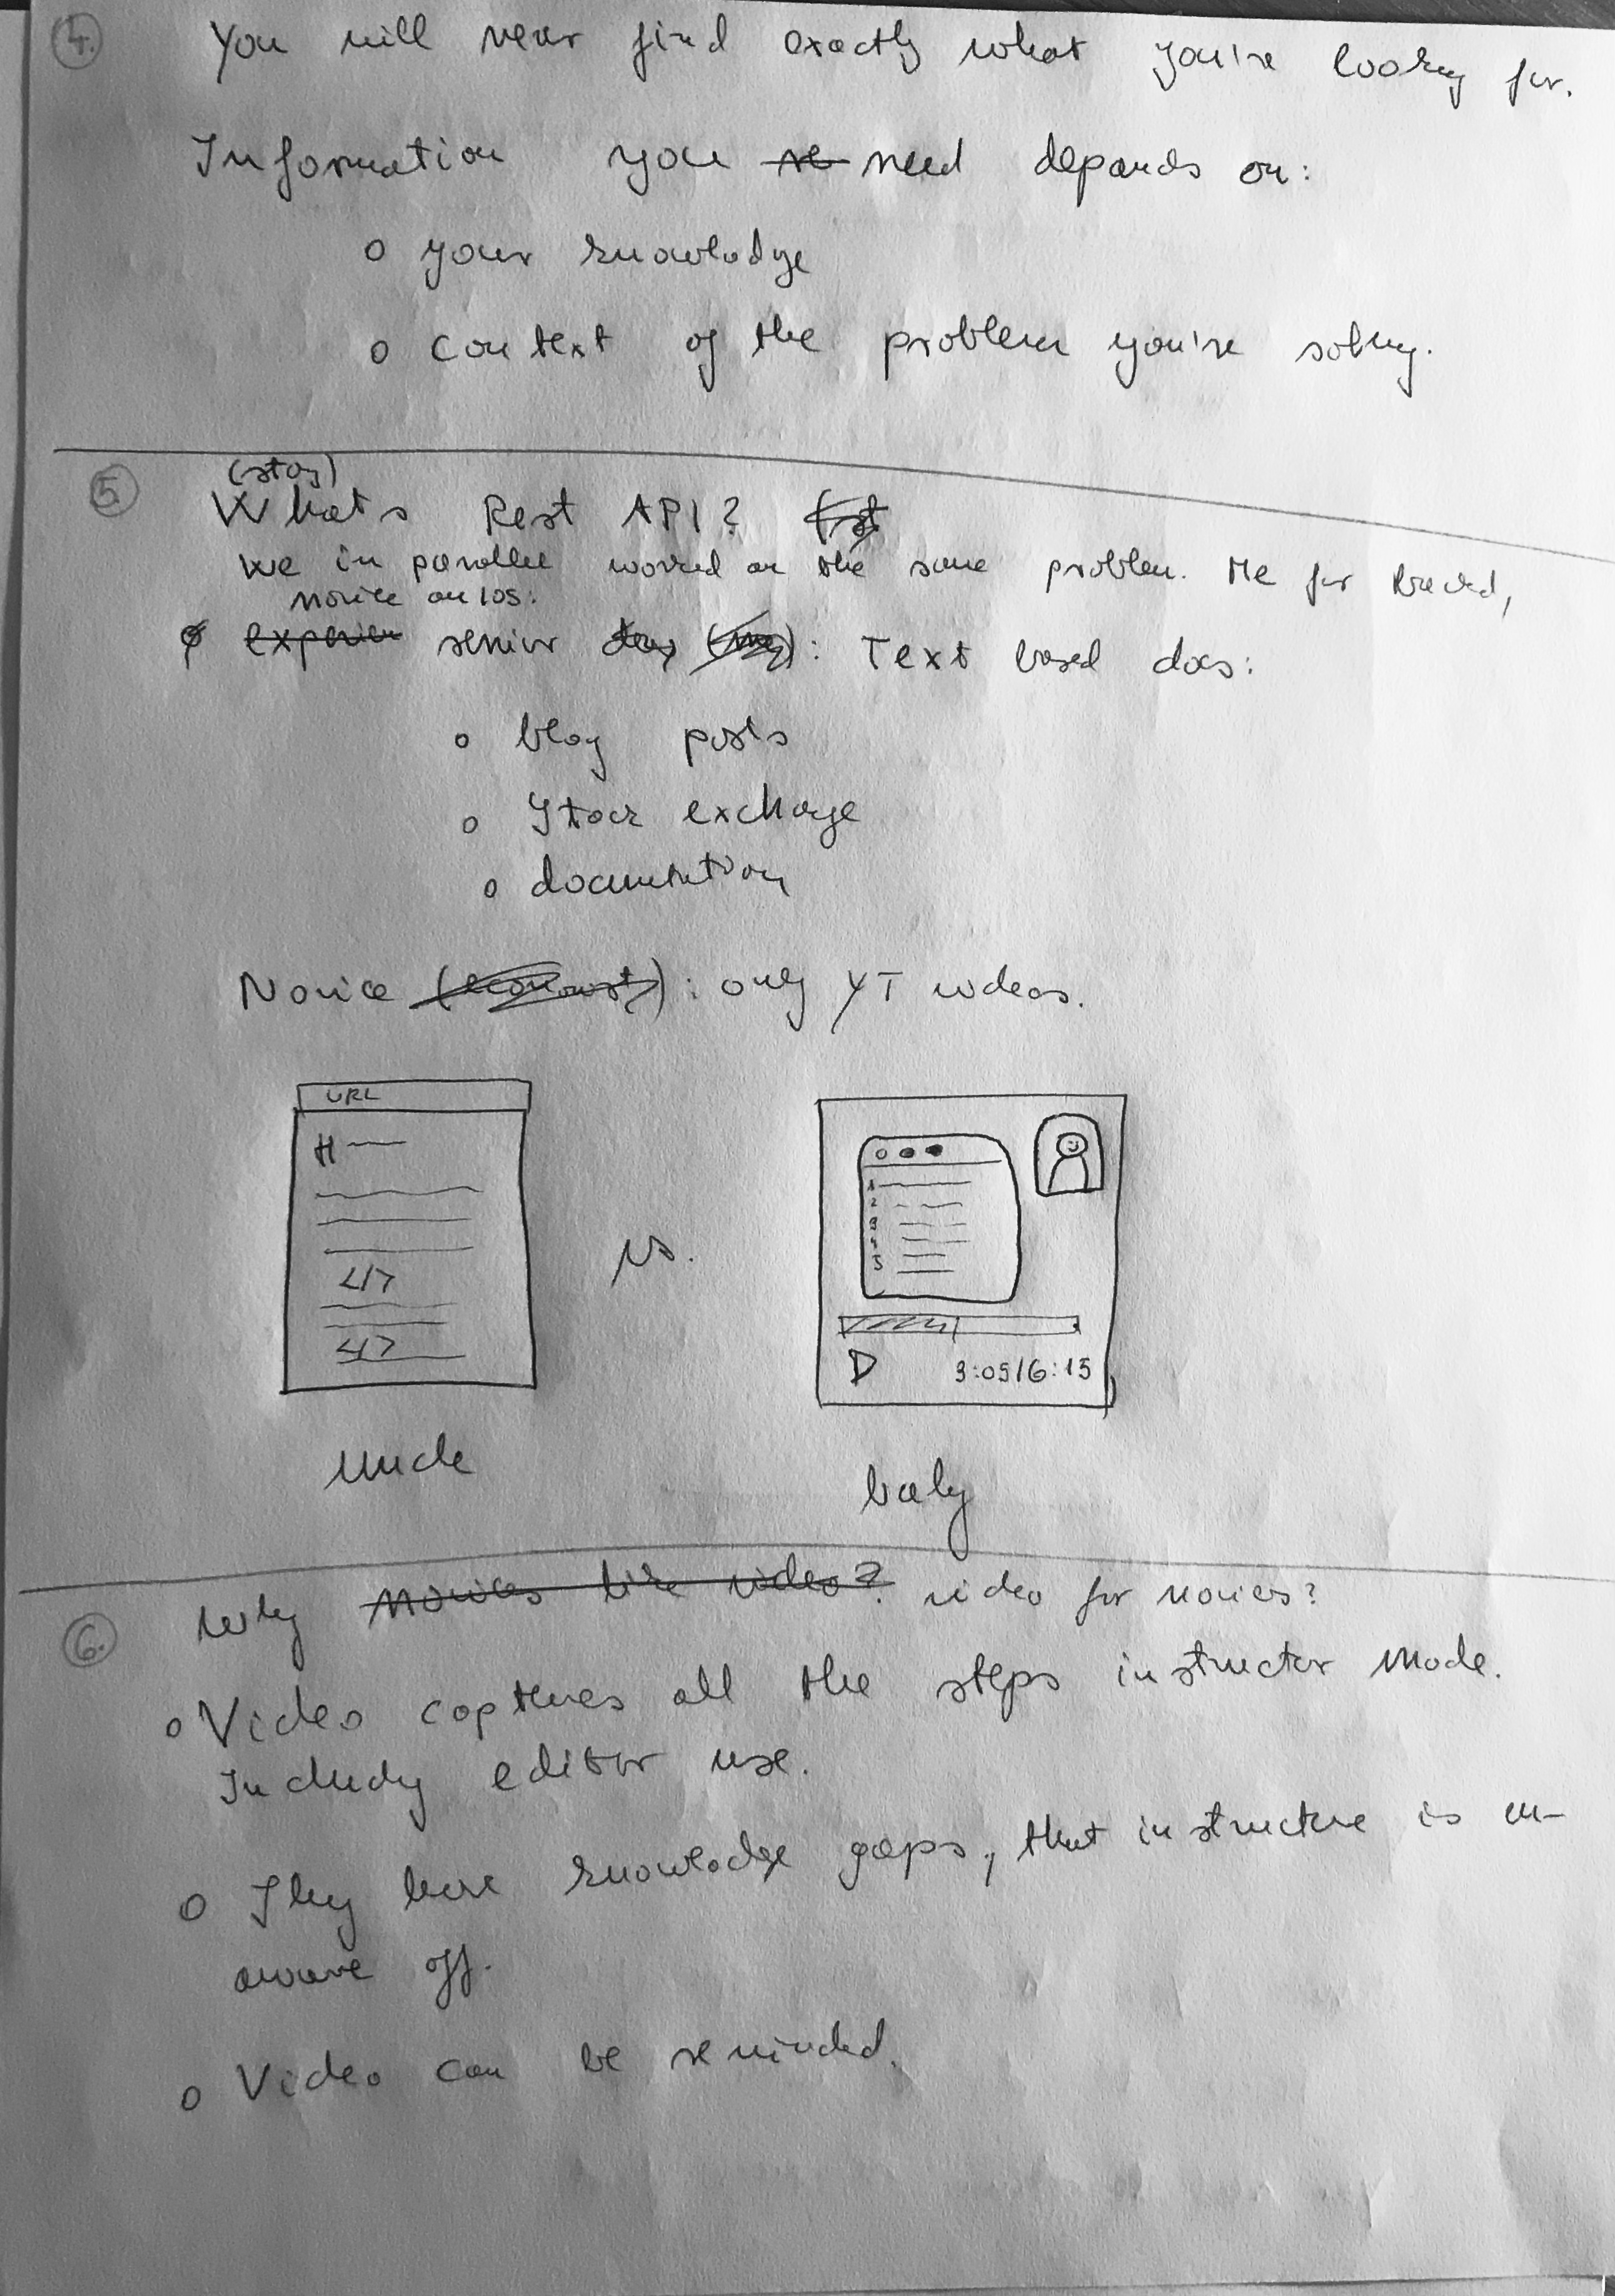 4.
You will never find exactly what you're looking for.
Information you need depends on:
o your knowledge
o context of the problem you're solving.
5.
(story)
What's Rest API?
We in parallel worked on the same problem. Me for backend,
novice on iOS.
senior : Text based docs:
o blog posts
o Stack exchange
o documentation
Novice : only YT videos.
URL
H
</>
</>
vs.
1
2
3
4
5
3:05/6:15
uncle
baby
6.
Why video for novices?
o Video captures all the steps instructor made.
Including editor use.
o They have knowledge gaps, that instructure is un-
aware off.
o Video can be rewinded.